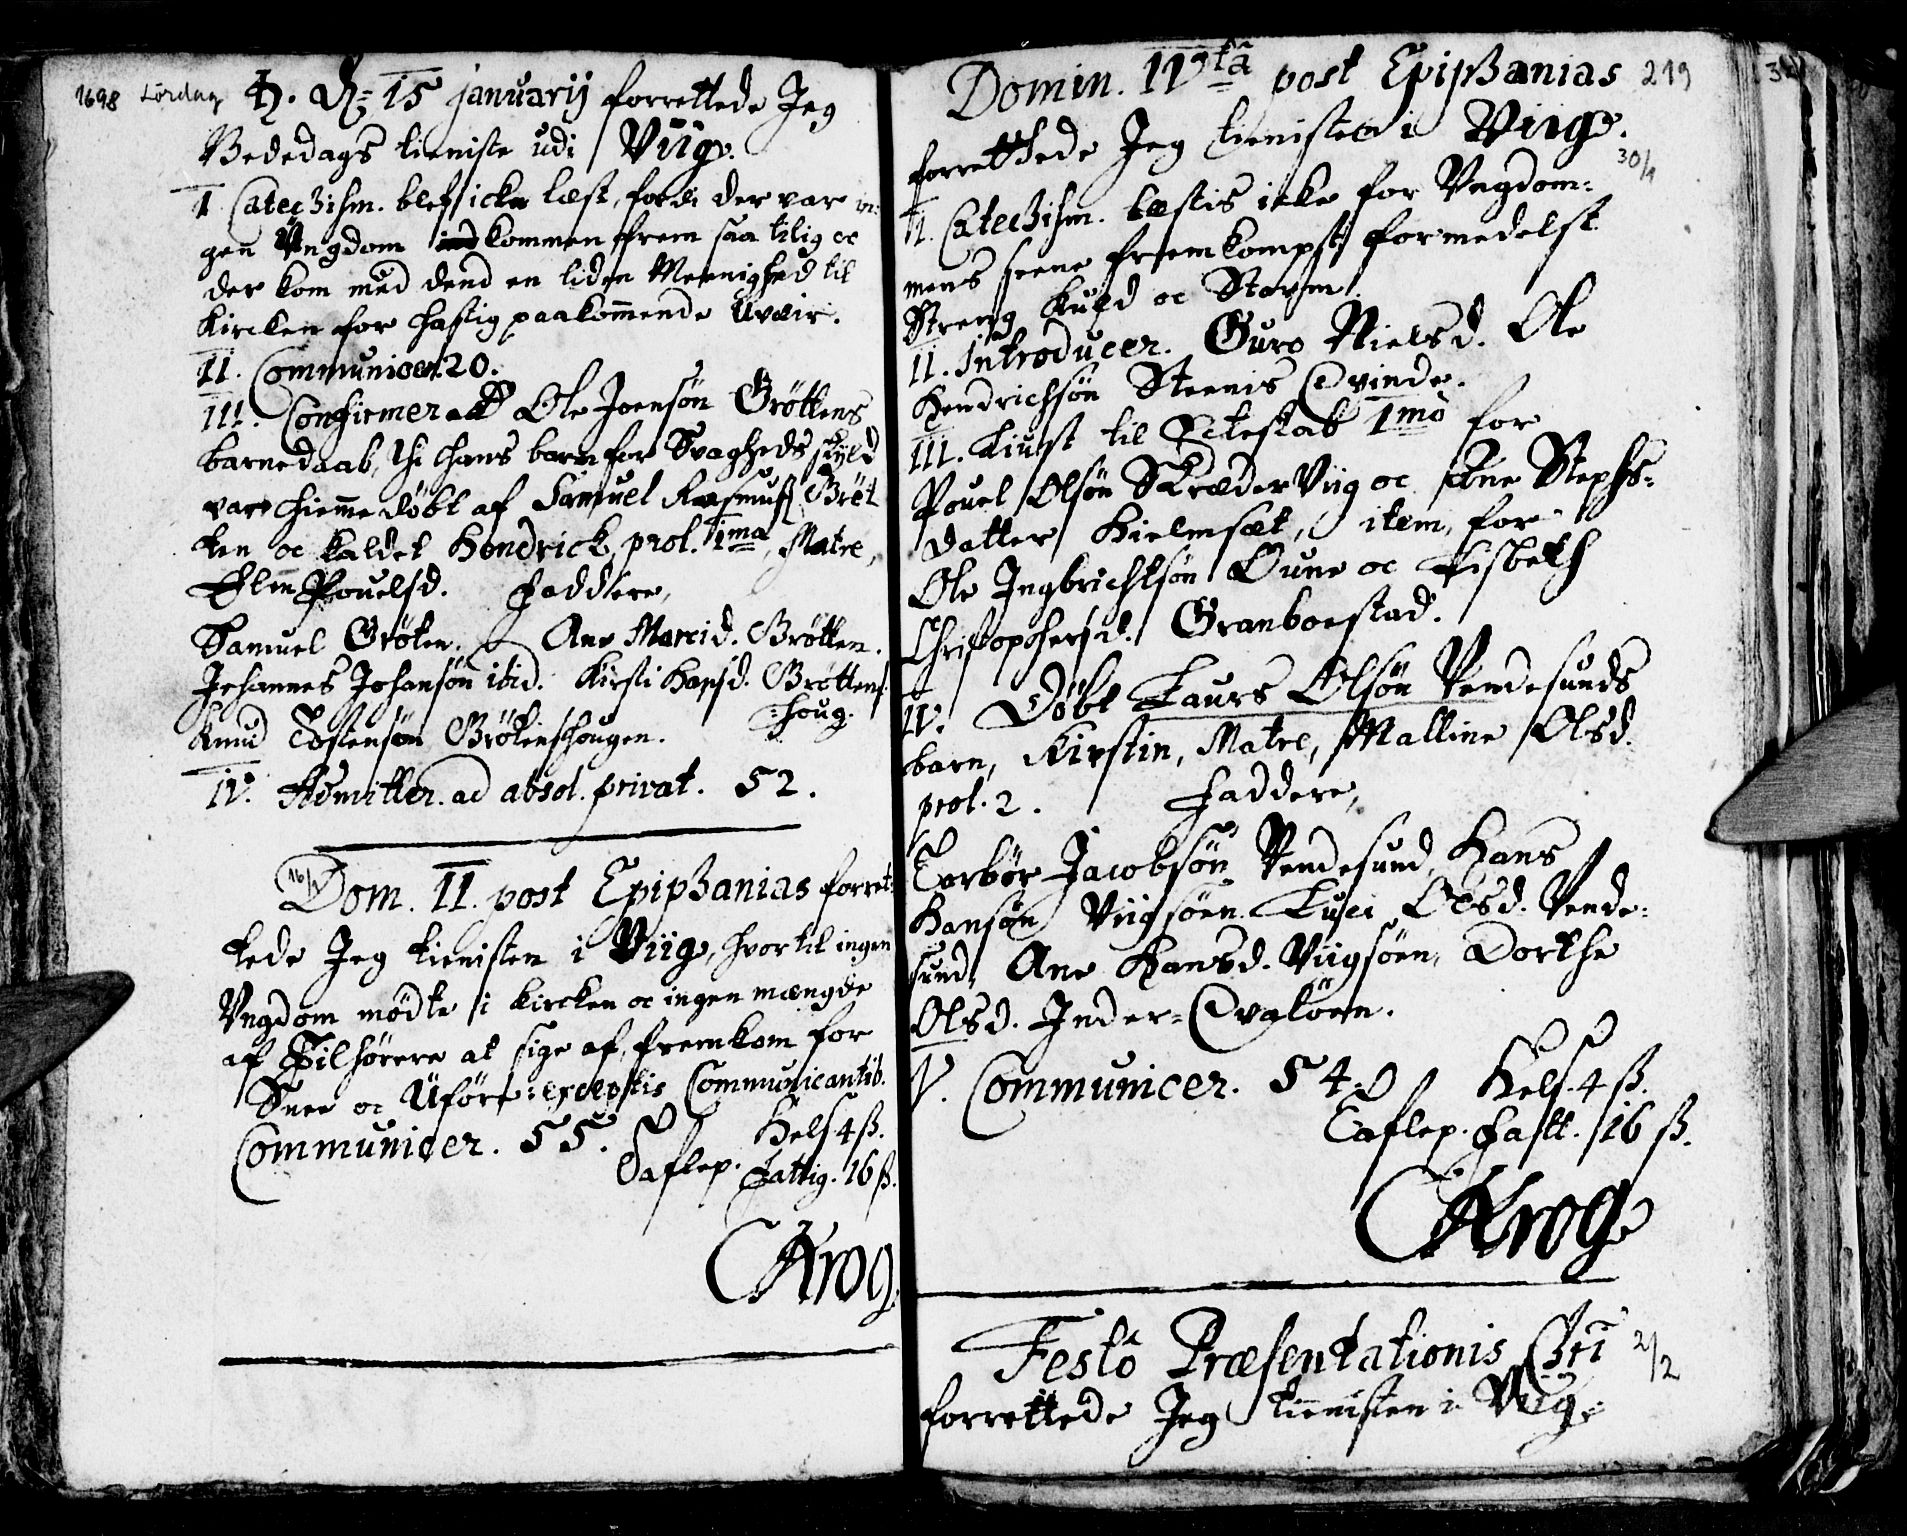 1698 Lördag ♄. D: 15 januarij forrettede Jeg
Bededags tieniste udi Viig.
I Catechism. blef icke læst, fordi der var in-
gen Ungdom kommen frem saa tilig oc
der kom med dend en liden Meenighed til
Kircken for hastig paakom̄ende Uveir.
II. Communicer. 20.
III. Confirmer. Ole Joensön Bröttens
barnedaab, thi hans barn for Svagheds skyld
var hiem̄edöbt af Samuel Rasmus. Bröt
ten oc kaldet Hendrick, prol. 1ma, Matre,
Elen Pouelsd. Faddere,
Samuel Bröten. Ane Marcid. Brötten.
Johannes Johansön ibid. Kirsti Hansd. Bröttens
houg.
Knud Tostensön Brötenshougen.
IV. Admitter. ad absol. privat. 52.
16/1
Dom. II. post Epiphanias forret-
tede Jeg tienisten i Viig, hvortil ingen
Ungdom mödte i kircken oc ingen mængde
af Tilhörere at sige af, fremkom for
Snee oc Uföre: exceptis Communicantib.
Communicer. 55. Hels 4 ß.
Taflep. Fattig. 16 ß.
CKrog
Domin. IVta post Epiphanias 219
forrettede Jeg tienisten i Viig.
30/1
I. Catechism. læstis icke for Ungdom-
mens seene fremkompst formedelst
Streng Kuld oc Storm.
II. Introducer. Guro Nielsd. Ole
Hendrichsön Steenis Qvinde.
III. Liust til Ecteskab 1mo for
Pouel Olsön Skræder Viig oc Ane Stephs-
datter Hielmsæt, item, for
Ole Ingbrichtsön Öune oc Lisbeth
Christophersd. Granboestad.
IV. Döbt Laurs Olsön Vendesunds
barn, Kirstin, Matre, Malline Olsd.
prol. 2. Faddere,
Torbör Jacobsön Vendesund, Hans
Hansön Viigsöen. Luci Olsd. Vende-
sund, Ane Hansd. Viigsöen, Dorthe
Olsd. Inder-Qvalöen.
V. Communicer. 54. Hels. 4 ß.
Taflep. Fatt. 16 ß.
CKrog
Festo Præsentationis Chri 2/2
forrettede Jeg tienisten i Viig.